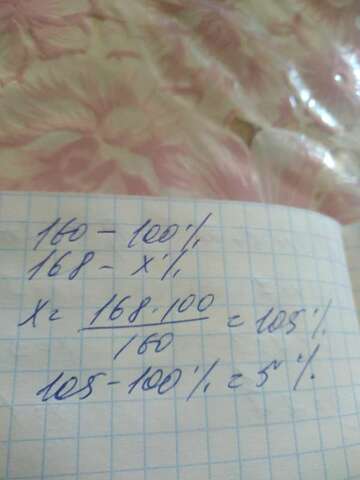 160 - 100%
168 - x%
x = 168·100/160 = 105%
105 - 100% = 5%